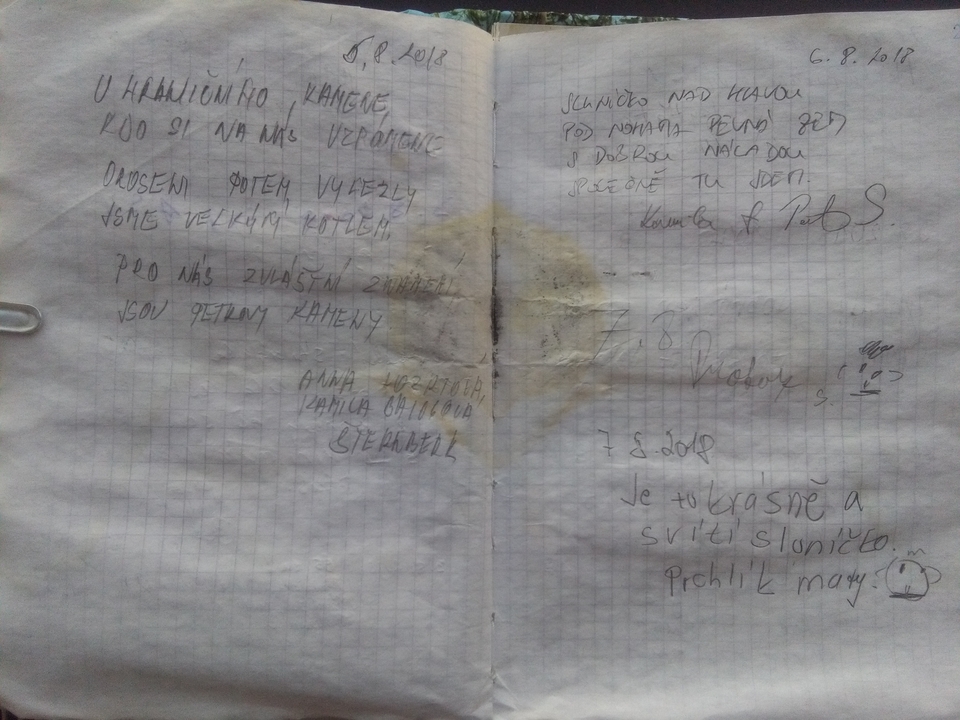 5.8.2018
U HRANIČNÍHO KAMENE,
KDO SI NA NÁS VZPOMENE
OROSENI POTEM, VYLEZLY
JSME VELKÝM KOTLEM.
PRO NÁS ZVLÁŠTNÍ ZNAMENÍ
JSOU PETROVY KAMENY
ANNA
KAMILA
ŠTERNBERK
6.8.2018
SLUNÍČKO NAD HLAVOU
POD NOHAMA PEVNÁ ZEM
S DOBROU NÁLADOU
SPOLEČNĚ TU JSEM.
7.8
7 8.2018
Je tu krásně a
svítí sluníčko.
Prchlík malý.